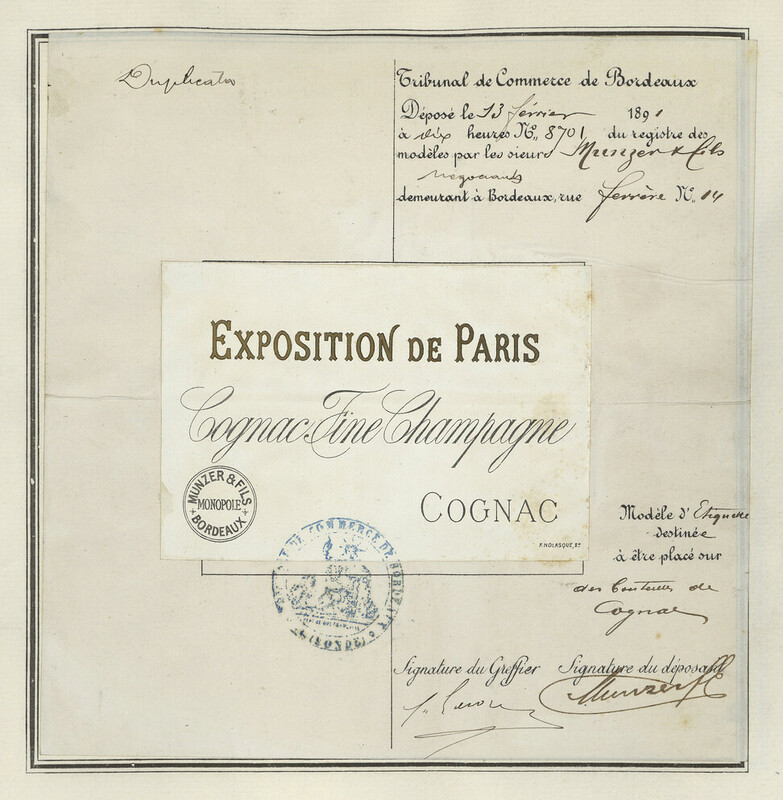 Duplicata
Tribunal de Commerce de Bordeaux
Déposé le 13 février 1891
à dix heures N° 8701 du registre des
modèles par les sieurs Munzer & Fils
négociants
demeurant à Bordeaux, rue Ferrère N° 14
EXPOSITION DE PARIS
Cognac Fine Champagne
MUNZER & FILS
MONOPOLE
BORDEAUX
COGNAC
F. NOLASQUE, Bx
Modèle d'Etiquette
destinée
à être placé sur
des bouteilles de
Cognac
DE COMMERCE DE BORDEAUX
(GIRONDE)
Signature du Greffier Signature du déposant
Munzer